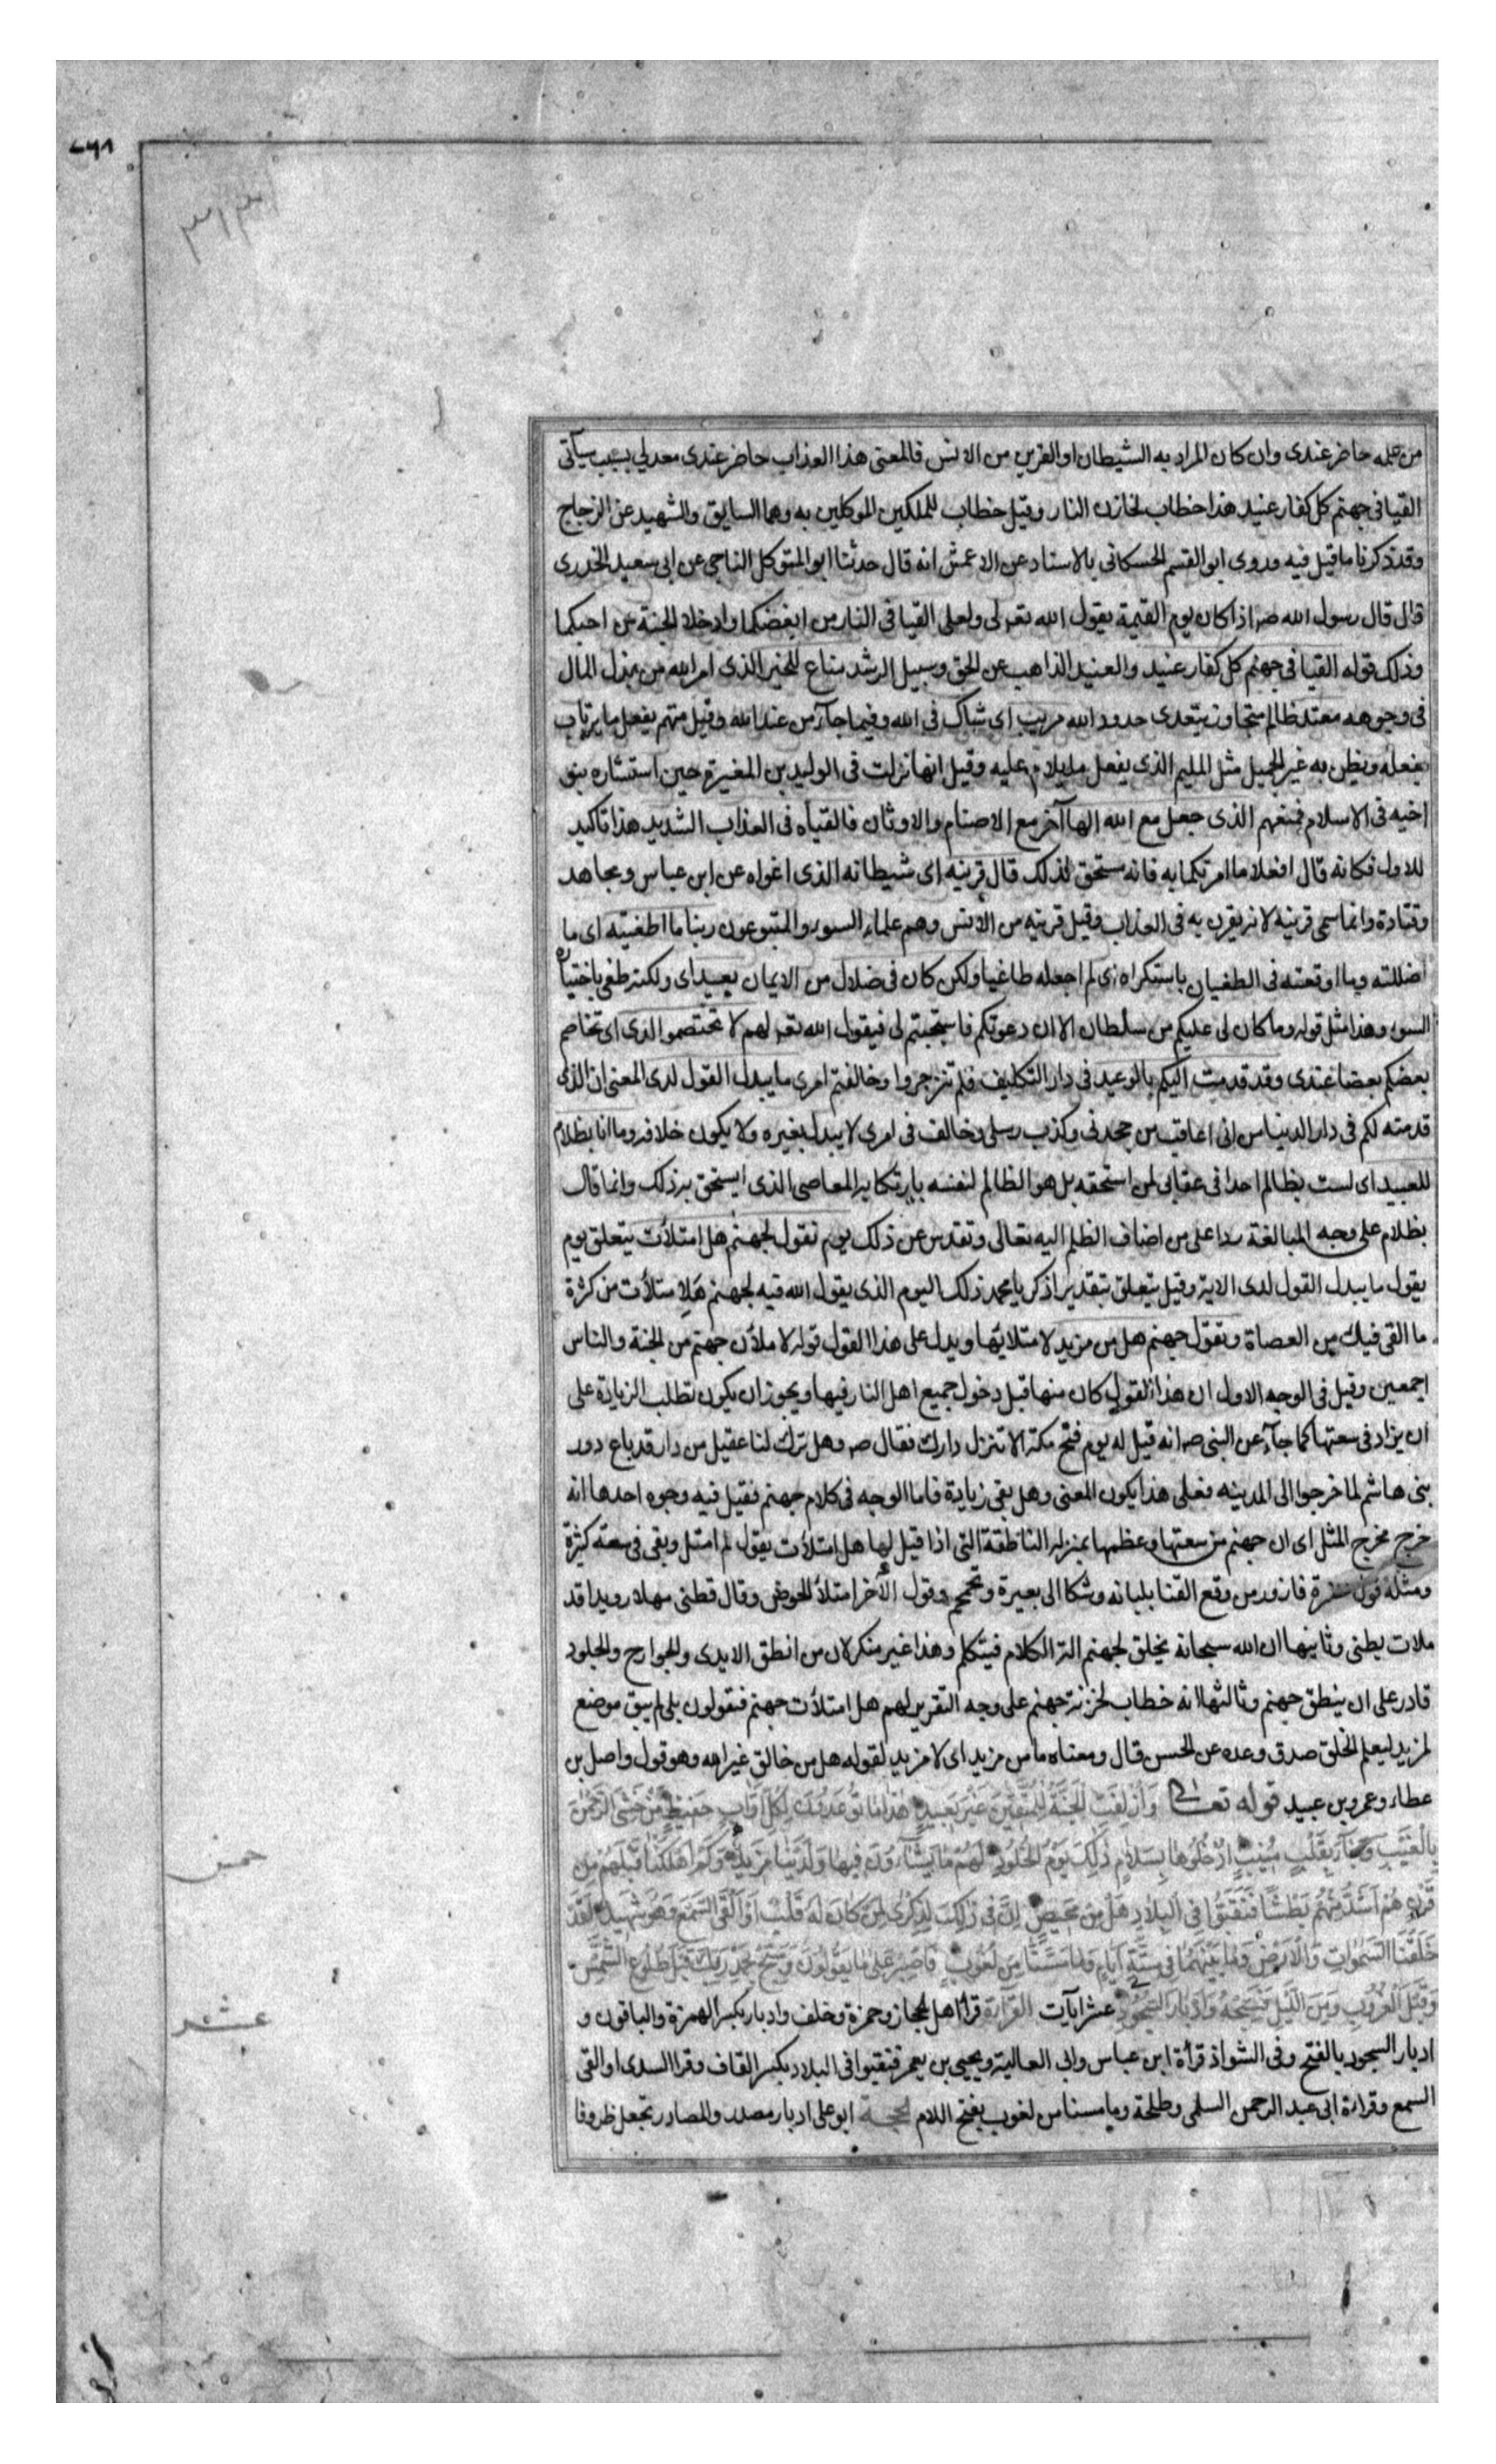 من عمله حاضر عندى وان كان المراد به الشيطان او القرين من الانس فالمعنى هذا العذاب حاضر عندى معد لى بسبب سيآتى
القيا فى جهنم كل كفار عنيد هذا خطاب لخازن النار وقيل خطاب للملكين الموكلين به وهما السايق والشهيد عن الزجاج
وقد ذكرنا ما قيل فيه وروى ابو القسم الحسكانى بالاسناد عن الاعمش انه قال حدثنا ابو المتوكل الناجى عن ابى سعيد الخدرى
قال قال رسول الله صه اذا كان يوم القيمة يقول الله تعه لى ولعلى القيا فى النار من ابغضكما وادخلا الجنة من احبكما
وذلك قوله القيا فى جهنم كل كفار عنيد والعنيد الذاهب عن الحق وسبيل الرشد مناع للخير الذى امر الله من بذل المال
فى وجوهه معتد ظالم متجاوز يتعدى حدود الله مريب اى شاك فى الله وفيما جآء من عند الله وقيل متهم يفعل ما يرتاب
بفعله ويظن به غير الجميل مثل المليم الذى يفعل ما يلام عليه وقيل انها نزلت فى الوليد بن المغيرة حين استشاره بنو
اخيه فى الاسلام فمنعهم الذى جعل مع الله الها آخر مع الاصنام والاوثان فالقياه فى العذاب الشديد هذا تاكيد
للاول فكانه قال افعلا ما امرتكما به فانه مستحق لذلك قال قرينه اى شيطانه الذى اغواه عن ابن عباس ومجاهد
وقتادة وانما سمى قرينه لانه يقرن به فى العذاب وقيل قرينه من الانس وهم علماء السوء والمتبوعون ربنا ما اطغيته اى ما
اضللته وما اوقعته فى الطغيان باستكراه اى لم اجعله طاغيا ولكن كان فى ضلال من الايمان بعيد اى ولكنه طغى باختياره
السوء وهذا مثل قوله وما كان لى عليكم من سلطان الا ان دعوتكم فاستجبتم لى فيقول الله تعه لهم لا تختصموا لدى اى تخاصم
بعضكم بعضا عندى وقد قدمت اليكم بالوعيد فى دار التكليف فلم تنزجروا وخالفتم امرى ما يبدل القول لدى المعنى ان الذى
قدمته لكم فى دار الدنيا من انى اعاقب من جحدنى وكذب رسلى وخالف فى امرى لا يبدل بغيره ولا يكون خلافه وما انا بظلام
للعبيد اى لست بظالم احدا فى عقابى لمن استحقه بل هو الظالم لنفسه بارتكابه المعاصى الذى ايستحق بـذلك وانما قال
بظلام على وجه المبالغة ردا على من اضاف الظلم اليه تعالى وتقدس عن ذلك يوم نقول لجهنم هل امتلأت يتعلق يوم
بقول ما يبدل القول لدى الاية وقيل يتعلق بتقدير اذكر يا محمد ذلك اليوم الذى يقول الله فيه لجهنم هل امتلأت من كثرة
ما القى فيك من العصاة وتقول جهنم هل من مزيد لامتلايها ويدل على هذا القول قوله لاملأن جهنم من الجنة والناس
اجمعين وقيل فى الوجه الاول ان هذا القول كان منها قبل دخول جميع اهل النار فيها ويجوز ان يكون تطلب الزيادة على
ان يزاد فى سعتها كما جآء عن النبى صه انه قيل له يوم فتح مكة الا تنزل دارك فقال صه وهل ترك لنا عقيل من دار قد باع دور
بنى هاشم لما خرجوا الى المدينه فعلى هذا يكون المعنى وهل بقى زيادة فاما الوجه فى كلام جهنم فقيل فيه وجوه احدها انه
خرج مخرج المثل اى ان جهنم من سعتها وعظمها بمنزله الناطقة التى اذا قيل لها هل امتلأت يقول لم امتل وبقى فى سعة كثيرة
ومثله قول عنترة فازور من وقع القنا بلبانه وشكا الى بعبرة وتحمحم وقول الآخر امتلأ الحوض وقال قطنى مهلا رويدا قد
ملات بطنى وثانيها ان الله سبحانه يخلق لجهنم آلة الكلام فيتكلم وهذا غير منكر لان من انطق الايدى والجوارح والجلود
قادر على ان ينطق جهنم وثالثها انه خطاب لخزنة جهنم على وجه التقرير لهم هل امتلأت جهنم فتقولون بلى لم يبق موضع
لمزيد ليعلم الخلق صدق وعده عن الحسن قال ومعناه ما من مزيد اى لا مزيد لقوله هل من خالق غير الله وهو قول واصل بن
عطاء وعمرو بن عبيد قوله تعالى وَأُزْلِفَتِ الْجَنَّةُ لِلْمُتَّقِينَ غَيْرَ بَعِيدٍ هٰذَا مَا تُوعَدُونَ لِكُلِّ أَوَّابٍ حَفِيظٍ مَنْ خَشِىَ الرَّحْمٰنَ
بِالْغَيْبِ وَجَآءَ بِقَلْبٍ مُنِيبٍ ادْخُلُوهَا بِسَلَامٍ ذٰلِكَ يَوْمُ الْخُلُودِ لَهُمْ مَا يَشَآءُونَ فِيهَا وَلَدَيْنَا مَزِيدٌ وَكَمْ أَهْلَكْنَا قَبْلَهُمْ مِنْ
قَرْنٍ هُمْ أَشَدُّ مِنْهُمْ بَطْشًا فَنَقَّبُوا فِى الْبِلَادِ هَلْ مِنْ مَحِيصٍ إِنَّ فِى ذٰلِكَ لَذِكْرٰى لِمَنْ كَانَ لَهُ قَلْبٌ أَوْ أَلْقَى السَّمْعَ وَهُوَ شَهِيدٌ وَلَقَدْ
خَلَقْنَا السَّمٰوَاتِ وَالْأَرْضَ وَمَا بَيْنَهُمَا فِى سِتَّةِ أَيَّامٍ وَمَا مَسَّنَا مِنْ لُغُوبٍ فَاصْبِرْ عَلٰى مَا يَقُولُونَ وَسَبِّحْ بِحَمْدِ رَبِّكَ قَبْلَ طُلُوعِ الشَّمْسِ
وَقَبْلَ الْغُرُوبِ وَمِنَ اللَّيْلِ فَسَبِّحْهُ وَأَدْبَارَ السُّجُودِ عشر آيات القرآءة قرأ اهل الحجاز وحمزة وخلف وادبار بكسر الهمزة والباقون و
ادبار السجود بالفتح وفى الشواذ قرأة ابن عباس وابى العالية ويحيى بن يعمر فنقبوا فى البلاد بكسر القاف وقرا السدى او القى
السمع وقراءة ابى عبد الرحمن السلمى وطلحة وما مسنا من لغوب بفتح اللام الحجـة ابو على ادبار مصدر والمصادر تجعل ظروفا
خمس
عشر